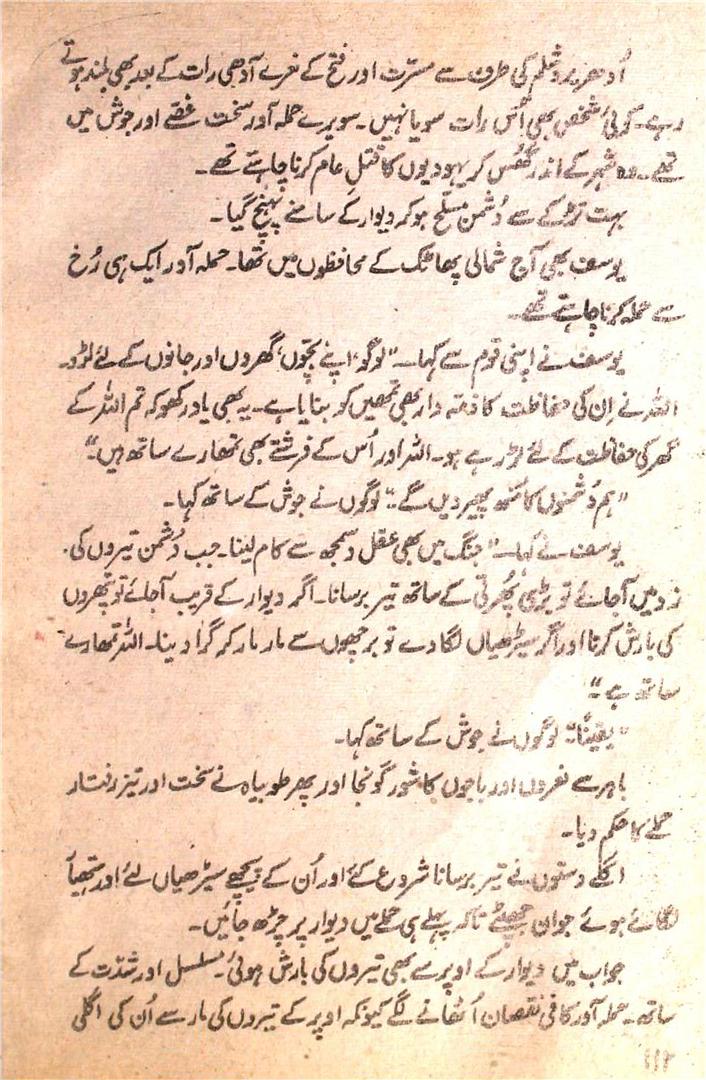 اُدھر یروشلم کی طرف سے مسرّت اور فتح کے نعرے آدھی رات کے بعد بھی بلند ہوتے
رہے۔ کوئی شخص بھی اُس رات سویا نہیں۔ سویرے حملہ آور سخت غصّے اور جوش میں
تھے۔ وہ شہر کے اندر گھُس کر یہودیوں کا قتلِ عام کرنا چاہتے تھے۔
بہت تڑکے سے دُشمن مسلّح ہو کر دیوار کے سامنے پہنچ گیا۔
یوسف بھی آج شمالی پھاٹک کے محافظوں میں تھا۔ حملہ آور ایک ہی رُخ
سے حملہ کرنا چاہتے تھے۔
یوسف نے اپنی قوم سے کہا۔ ”لوگو، اپنے بچّوں، گھروں اور جانوں کے لئے لڑو۔
اللہ نے اِن کی حفاظت کا ذمّہ دار بھی تمھیں کو بنایا ہے۔ یہ بھی یاد رکھو کہ تم اللہ کے
گھر کی حفاظت کے لئے لڑ رہے ہو۔ اللہ اور اُس کے فرشتے بھی تمھارے ساتھ ہیں۔“
”ہم دُشمنوں کا منھ پھیر دیں گے۔“ لوگوں نے جوش کے ساتھ کہا۔
یوسف نے کہا۔ ”جنگ میں بھی عقل و سمجھ سے کام لینا۔ جب دُشمن تیروں کی
زد میں آ جائے تو بڑی پھُرتی کے ساتھ تیر برسانا۔ اگر دیوار کے قریب آ جائے تو پتھروں
کی بارش کرنا اور اگر سیڑھیاں لگا دے تو برچھوں سے مار مار کر گرا دینا۔ اللہ تمھارے
ساتھ ہے۔“
”یقیناً۔“ لوگوں نے جوش کے ساتھ کہا۔
باہر سے نعروں اور باجوں کا شور گونجا اور پھر طوبیاہ نے سخت اور تیز رفتار
حملے کا حکم دیا۔
اگلے دستوں نے تیر برسانا شروع کئے اور اُن کے پیچھے سیڑھیاں لئے اور ہتھیا
لگائے ہوئے جوان جھپٹے تاکہ پہلے ہی حملے میں دیوار پر چڑھ جائیں۔
جواب میں دیوار کے اوپر سے بھی تیروں کی بارش ہوئی۔ مسلسل اور شدّت کے
ساتھ۔ حملہ آور کافی نقصان اُٹھانے لگے کیونکہ اوپر کے تیروں کی مار سے اُن کی اگلی